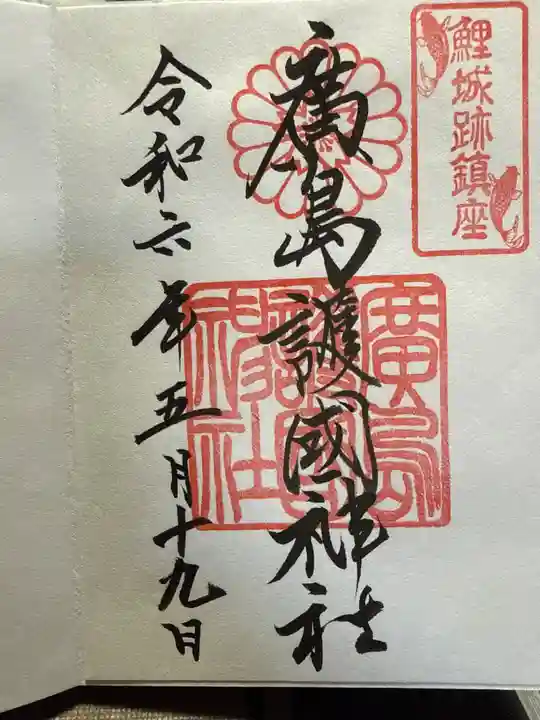 鯉城跡鎮座
廣島護國神社
廣島護國神社
令和六年五月十九日